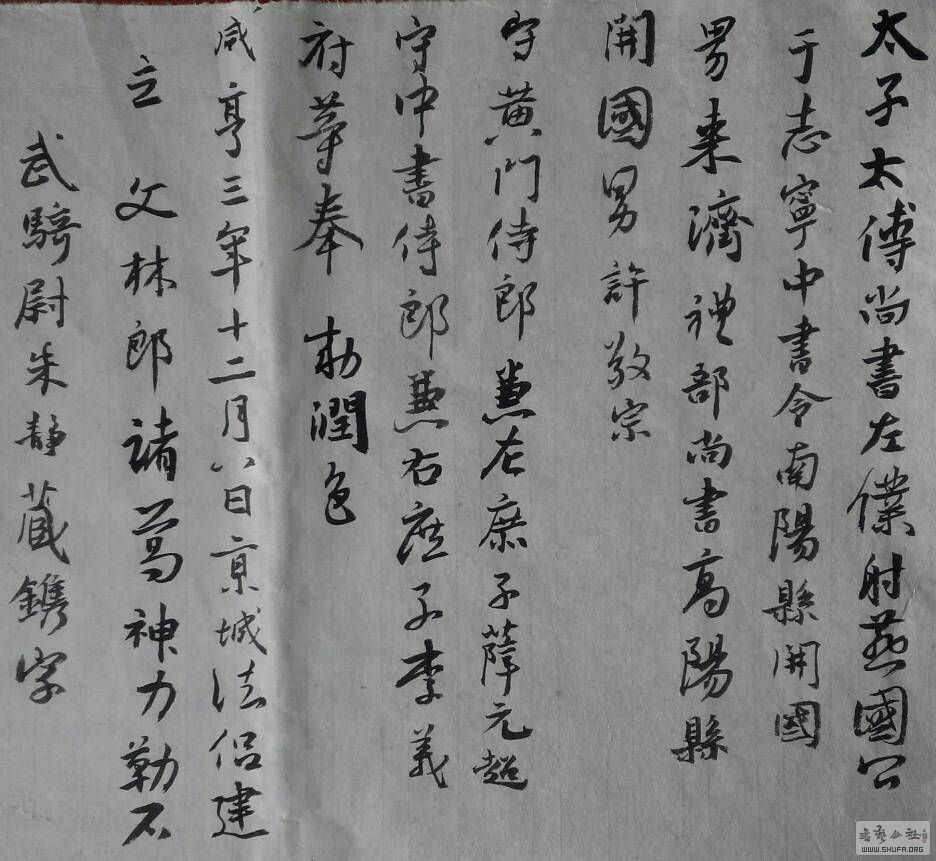 太子太傅尚書左僕射燕國公
于志寧中書令南陽縣開國
男来濟禮部尚書高陽縣
開國男許敬宗
守黄門侍郎兼左庶子薛元超
守中書侍郎兼右庶子李義
府等奉勅潤色
咸亨三年十二月八日京城法侣建
立文林郎諸葛神力勒石
武騎尉朱静蔵鐫字
書藝公社
WWW.SHUFA.ORG